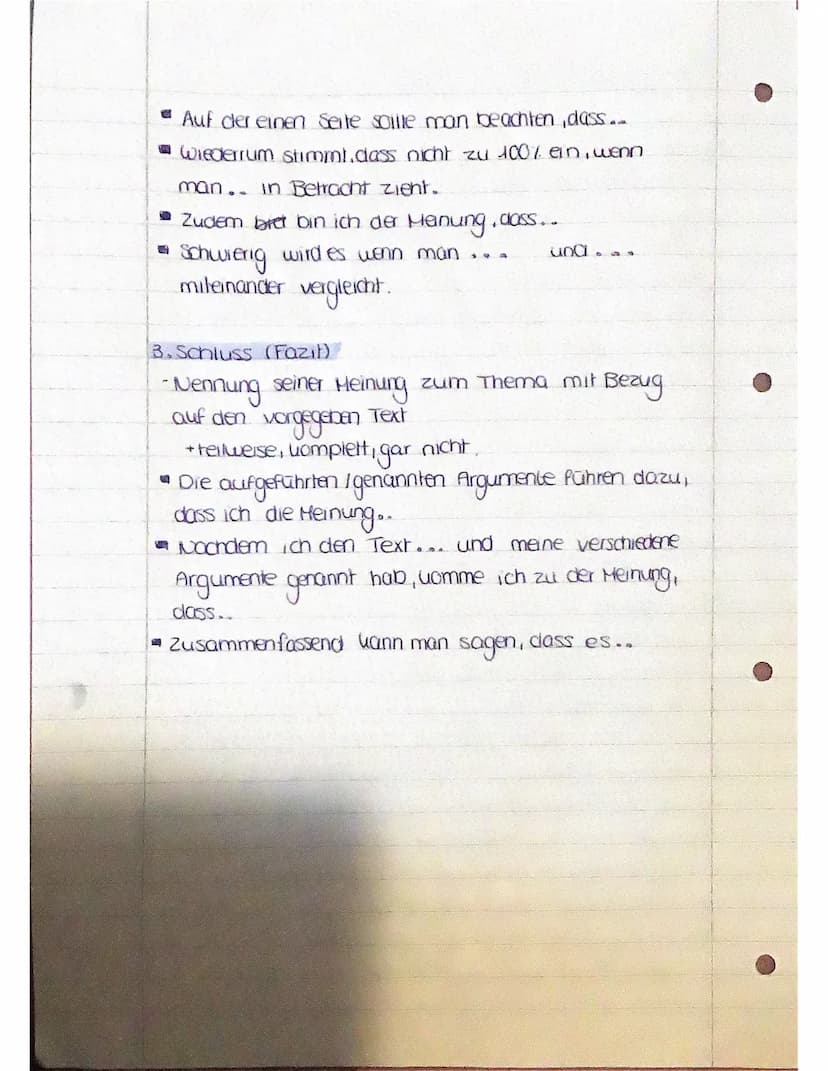 ▪ Auf der einen Seite sollte man beachten, dass..
▪ Wiederrum stimmt, dass nicht zu 100% ein, wenn
man.. in Betracht zieht.
▪ Zudem bin ich der Meinung, dass..
▪ Schwierig wird es wenn man ... und ...
miteinander vergleicht.
3. Schluss (Fazit)
- Nennung seiner Meinung zum Thema mit Bezug
auf den vorgegeben Text
+ teilweise, komplett, gar nicht.
▪ Die aufgeführten / genannten Argumente führen dazu,
dass ich die Meinung..
▪ Nachdem ich den Text... und meine verschiedene
Argumente genannt hab, komme ich zu der Meinung,
dass..
▪ Zusammenfassend kann man sagen, dass es..